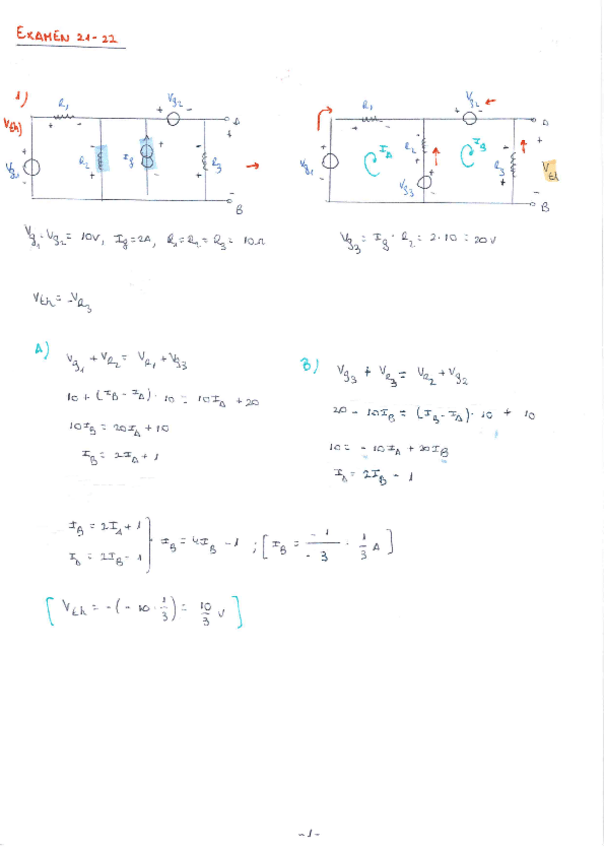 EXAMEN 21-22
1)
R1
Vg2
A
Vth)
Vg1
R2
Ig
R3
B
R1
Vg2
A
Vg1
IA
R2
IB
R3
Vth
Vg3
B
Vg1 = Vg2 = 10V, Ig = 2A, R1 = R2 = R3 = 10Ω
Vg3 = Ig · R2 = 2·10 = 20V
Vth = -VR3
A)
Vg1 + VR2 = VR1 + Vg3
10 + (IB - IA)·10 = 10IA + 20
10IB = 20IA + 10
IB = 2IA + 1
B)
Vg3 + VR3 = VR2 + Vg2
20 - 10IB = (IB - IA)·10 + 10
10 = -10IA + 20IB
IA = 2IB - 1
IB = 2IA + 1
IA = 2IB - 1
IB = 4IB - 1 ; [IB = -1/-3 = 1/3 A]
[Vth = -(-10·1/3) = 10/3 V]
-1-